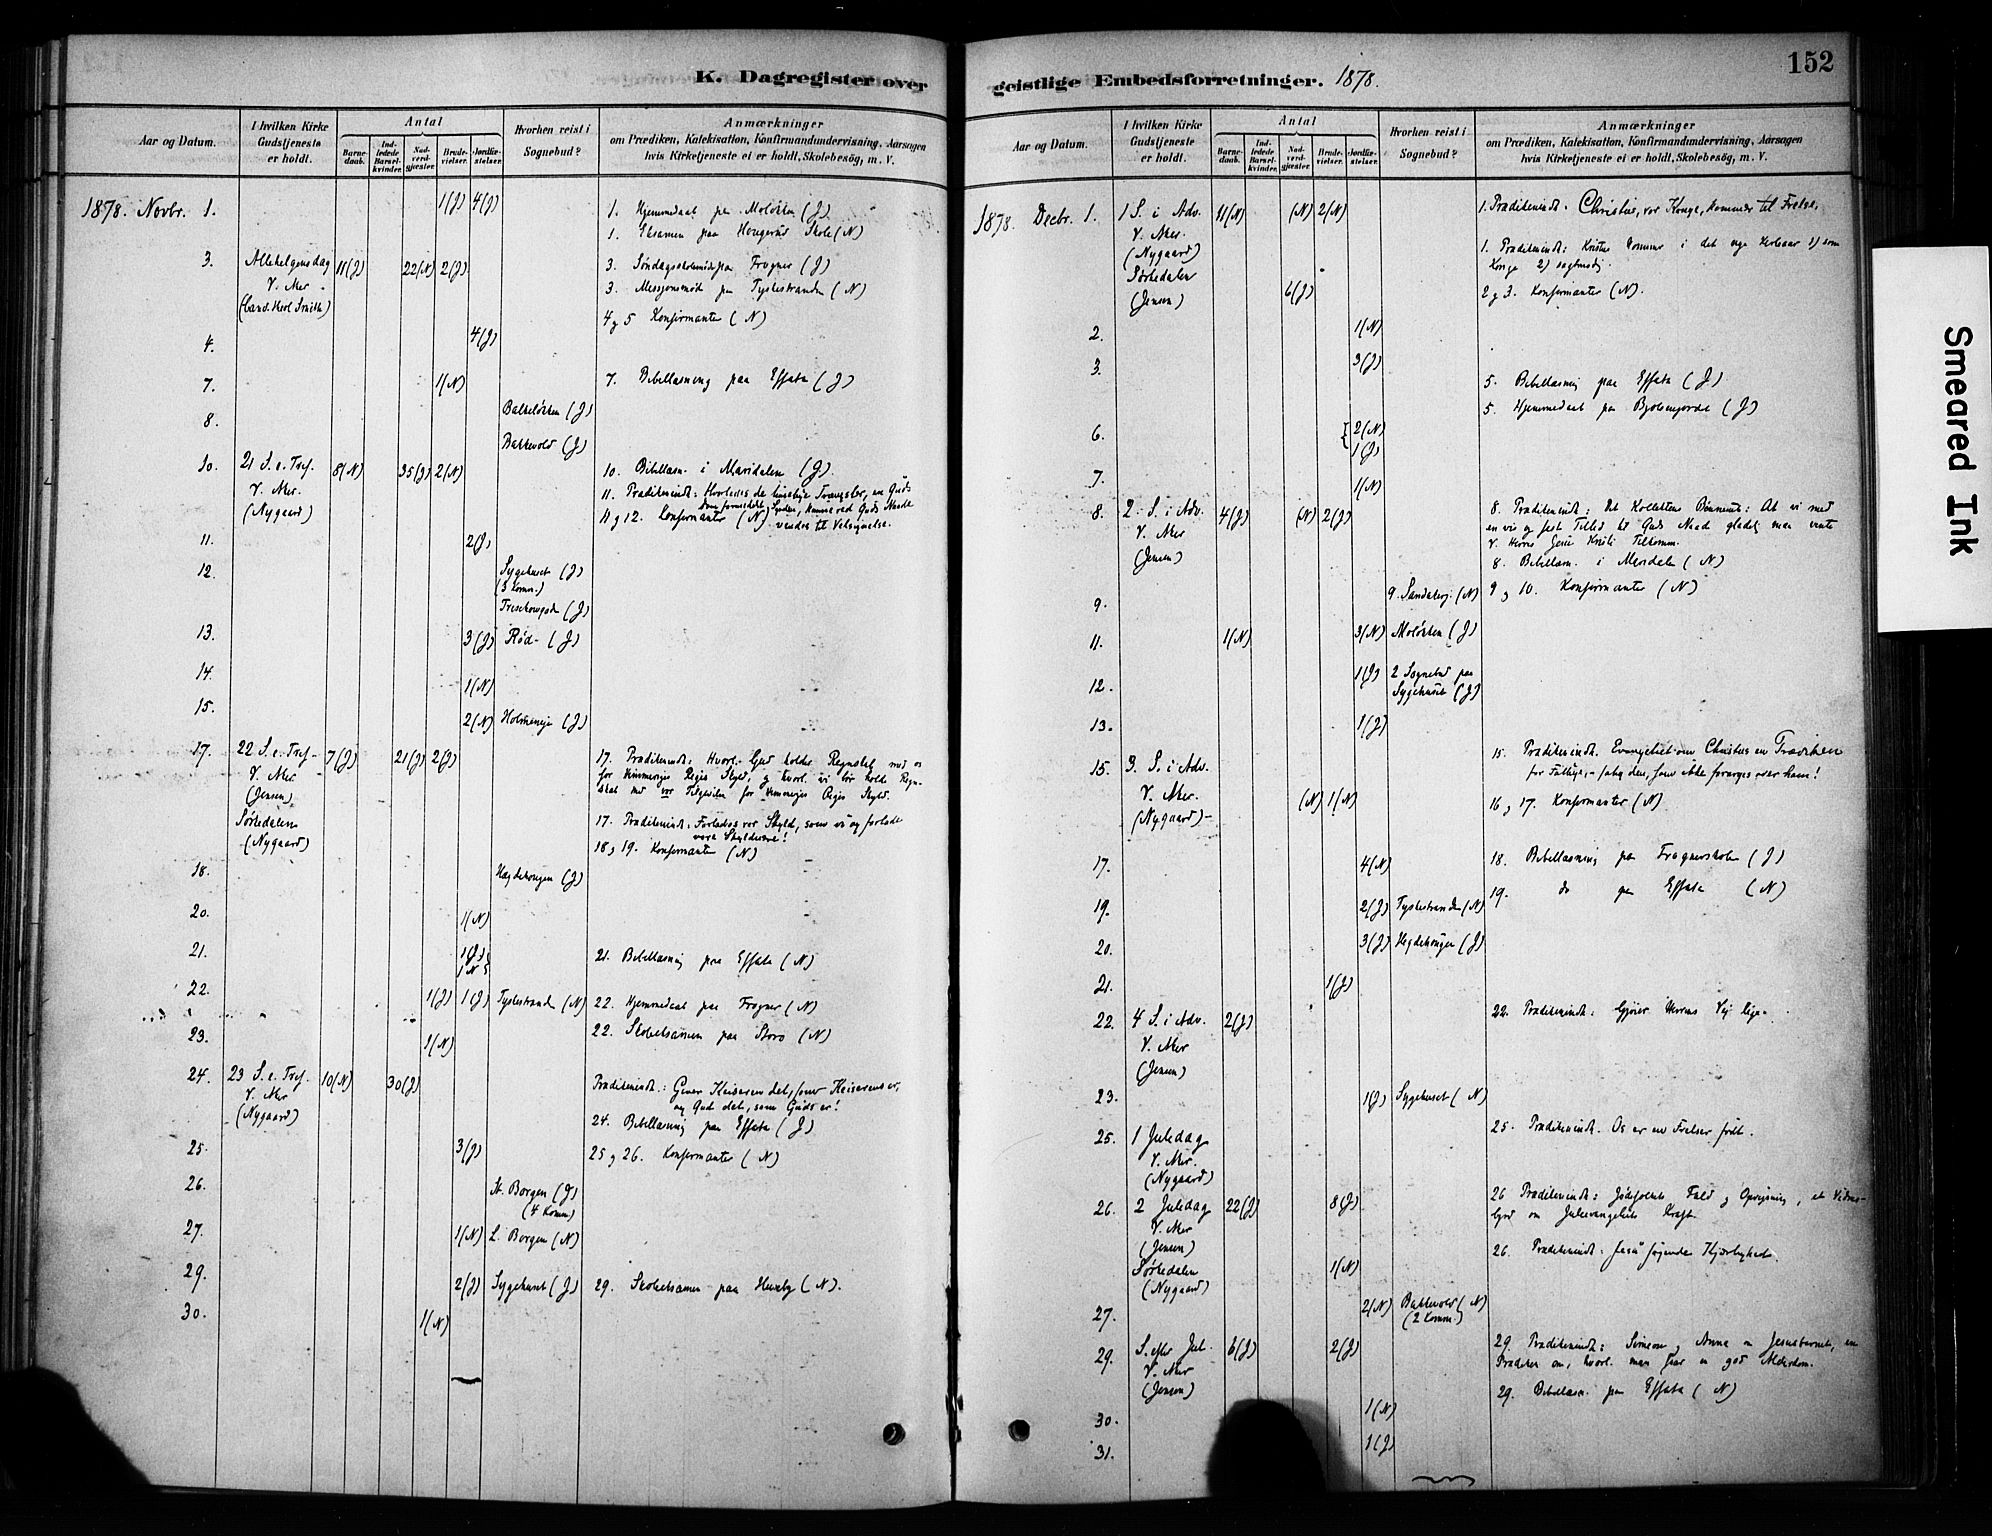 K. Dagregister over
geistlige Embedsforretninger. 1878.
152
Aar og Datum.
I hvilken Kirke Gudstjeneste er holdt.
Antal
Barnedaab.
Indledede Barselkvinder.
Nadverdgjæster.
Brudevielser.
Jordfæstelser.
Hvorhen reist i Sognebud?
Anmærkninger
om Prædiken, Katekisation, Konfirmandundervisning, Aarsagen
hvis Kirketjeneste ei er holdt, Skolebesög, m. V.
1878. Novbr. 1. 1(J) 4(J) 1. Hjemmedaab paa Molökken (J)
1. Eksamen paa Haugerud Skole (N)
3. Allehelgensdag 11(J) 22(N) 2(J) 3. Söndagsskolemöde paa Frogner (J)
V. Aker 3. Missjonsmöde paa Tyskestranden (N)
(Cand. Karl Smith) 4 og 5 Konfirmanter (N)
4. 4(J)
7. 1(N) 7. Bibellæsning paa Effata (J)
8. Balkeløkken (J)
Bakkevold (J)
10. 21 S. e. Tref. 8(N) 35(J) 2(N) 10. Bibellæsn. i Maridalen (J)
V. Aker. 11. Prædikenindh: Hvorledes de timelige Trængsler, en Guds
(Nygaard) Dom formedelst Synden, kunne ved Guds Naade
11 og 12. Konfirmanter (N) vendes til Velsignelse.
11. 2(J)
12. Sygehuset (J)
(3 Komm.)
(J)
13. 3(J) Röd (J)
14. 1(N)
15. 2(N) (J)
17. 22 S. e. Tref. 7(J) 21(J) 2(J) 17. Prædikenindh: Hvorl. Gud holder Regnskab med os
V. Aker for Himmeriges Riges Skyld, og hvorl. vi bör holde Regn-
(Jensen) skab med vor for Himmeriges Riges Skyld.
Sörkedalen 17. Prædikenindh: Forlad os vor Skyld, som vi og forlade
(Nygaard) vore Skyldnere!
18 og 19. Konfirmanter (N)
18. Hægdehougen (J)
20. 1(N)
21. 1(J) 1 N 21. Bibellæsning paa Effata (N)
22. 1(J) 1(J) Tyskestranden (N) 22. Hjemmedaab paa Frogner (N)
23. 1(N) 22. Skoleeksamen paa Storo (N)
24. 23 S. e. Tref. 10(N) 30(J) Prædikenindh.: Giver Keiseren det, som Keiserens er,
V. Aker og Gud det, som Guds er!
(Nygaard) 24. Bibellæsning paa Effata (J)
25. 3(J) 25 og 26. Konfirmanter (N)
26. St. Borgen (J)
(4 Komm.)
27. 1(N) L. Borgen (N)
29. 2(J) Sygehuset (J) 29. Skoleeksamen paa Huseby (N).
30. 1(N)
Aar og Datum.
I hvilken Kirke Gudstjeneste er holdt.
Antal
Barnedaab.
Indledede Barselkvinder.
Nadverdgjæster.
Brudevielser.
Jordfæstelser.
Hvorhen reist i Sognebud?
Anmærkninger
om Prædiken, Katekisation, Konfirmandundervisning, Aarsagen
hvis Kirketjeneste ei er holdt, Skolebesög, m. V.
1878. Decbr. 1. 1 S. i Adv. 11(N) (N) 2(N) 1. Prædikenindh. Christus, vor Konge, kommer til Frelse.
V. Aker. 1. Prædikenindh: Kristus kommer i det nye Kirkeaar 1) som
(Nygaard) Konge 2) sagtmodig.
Sörkedalen 6(J) 2 og 3. Konfirmanter (N).
(Jensen)
2. 1(N)
3. 3(J)
5. Bibellæsning paa Effata (J)
5. Hjemmedaab paa (J)
6. 2(N)
1(J)
7. 1(N)
8. 2. S. i Adv. 4(J) (N) 2(J) 8. Prædikenindh: Et Kollektens Bönneindh: At vi med
V. Aker en vis og fast Tillid til Guds Naad gladelig maa vente
(Jensen) V. Herres Jesu Kristi Tilkomm.
8. Bibellæsn. i Maridalen (N)
9. 9. Sandaker (N) 9 og 10. Konfirmanter (N)
11. 1(N) 3(N) Molökken (J)
12. 1(J) 2 Sognebud paa
Sygehuset (J)
13. 1(J)
15. 3. S. i Adv. 15. Prædikenindh. Evangeliet om Christus en Prædiken
V. Aker. (N) 1(N) for Fattige, – salig den, som ikke forarges over ham!
(Nygaard) 16 og 17. Konfirmanter (N)
17. 4(N) 18. Bibellæsning paa Frognerskole (J)
19. 2(J) Tyskestranden (N) 19. do paa Effata (N)
20. 3(J) Hegdehougen (J)
21. 1(J)
22. 4 S. i Adv. 2(J) 22. Prædikenindh: Gjörer Herrens Vei lige.
V. Aker
(Jensen)
23. 1(J) Sygehuset (N)
25. 1 Juledag 25. Prædikenindh. Os er en Frelser födt.
V. Aker.
(Nygaard)
26. 2 Juledag 22(J) 8(J) 26 Prædikenindh: Jödefolkets Fald og Opreisning, et Vidnes-
V. Aker byrd om Juleevangeliets Kraft.
(Jensen) 26. Prædikenindh: Jesu søgende Kjærlighed.
Sörkedalen 1(N)
(Nygaard)
27. 2(N) Bakkevold (N)
(2 Komm.)
29. S. efter Jul. 6(J) 2(J) 29. Prædikenindh: Simeon og Anna og Jesusbarnet, en
V. Aker Prædiken om, hvorl. man faar en god Alderdom.
(Jensen) 29. Bibellæsn. paa Effata (N)
30. 1(N)
31. 1(J)
Smeared Ink